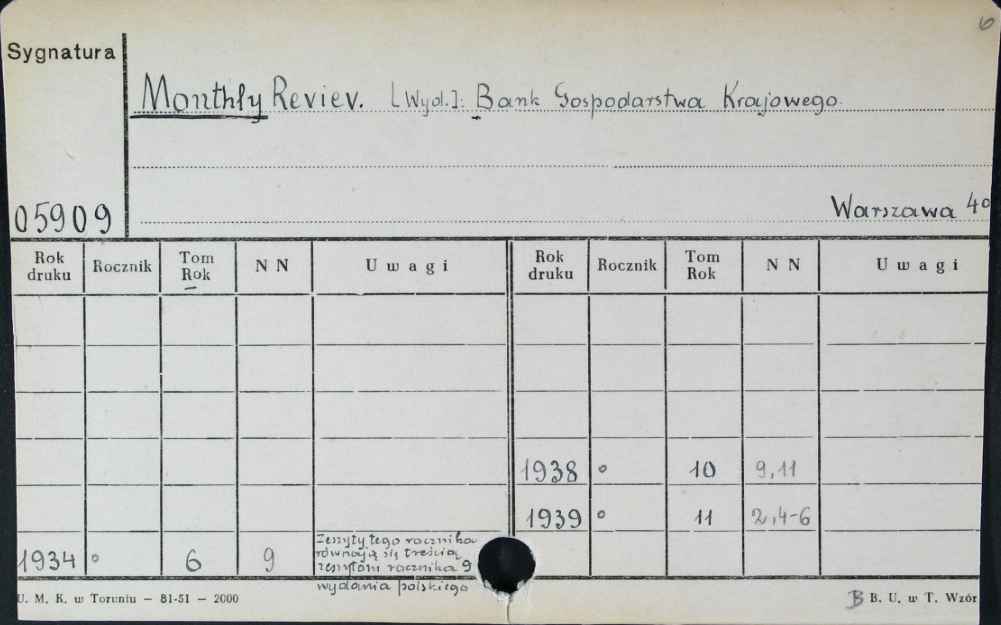 6
Sygnatura
Monthly Reviev. [Wyd.]: Bank Gospodarstwa Krajowego.
Warszawa 4°
05909
Rok druku Rocznik Tom Rok N N Uwagi Rok druku Rocznik Tom Rok N N Uwagi
1938 ° 10 9,11
1939 ° 11 2,4-6
1934 ° 6 9 Zeszyty tego rocznika
równają się treścią
zeszytom rocznika 9
wydania polskiego
U. M. K. w Toruniu — 81-51 — 2000
B B. U. w T. Wzór